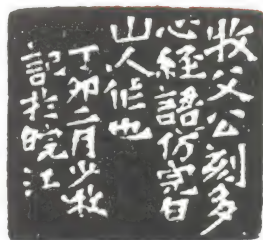 牧父公刻多
心經語仿完白
山人作也
丁卯二月少牧
記於皖江